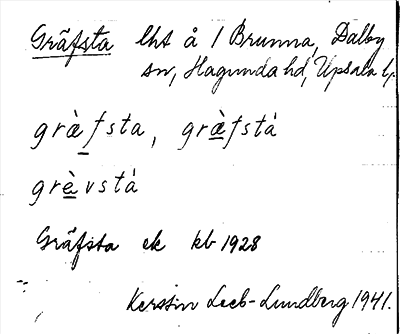 Gräfsta lht å 1 Brunna, Dalby
sn, Hagunda hd, Upsala l.
græ̀fsta, græ̀fstá
grèvstá
Gräfsta ek kb 1928
Kerstin Leeb-Lundberg 1941.